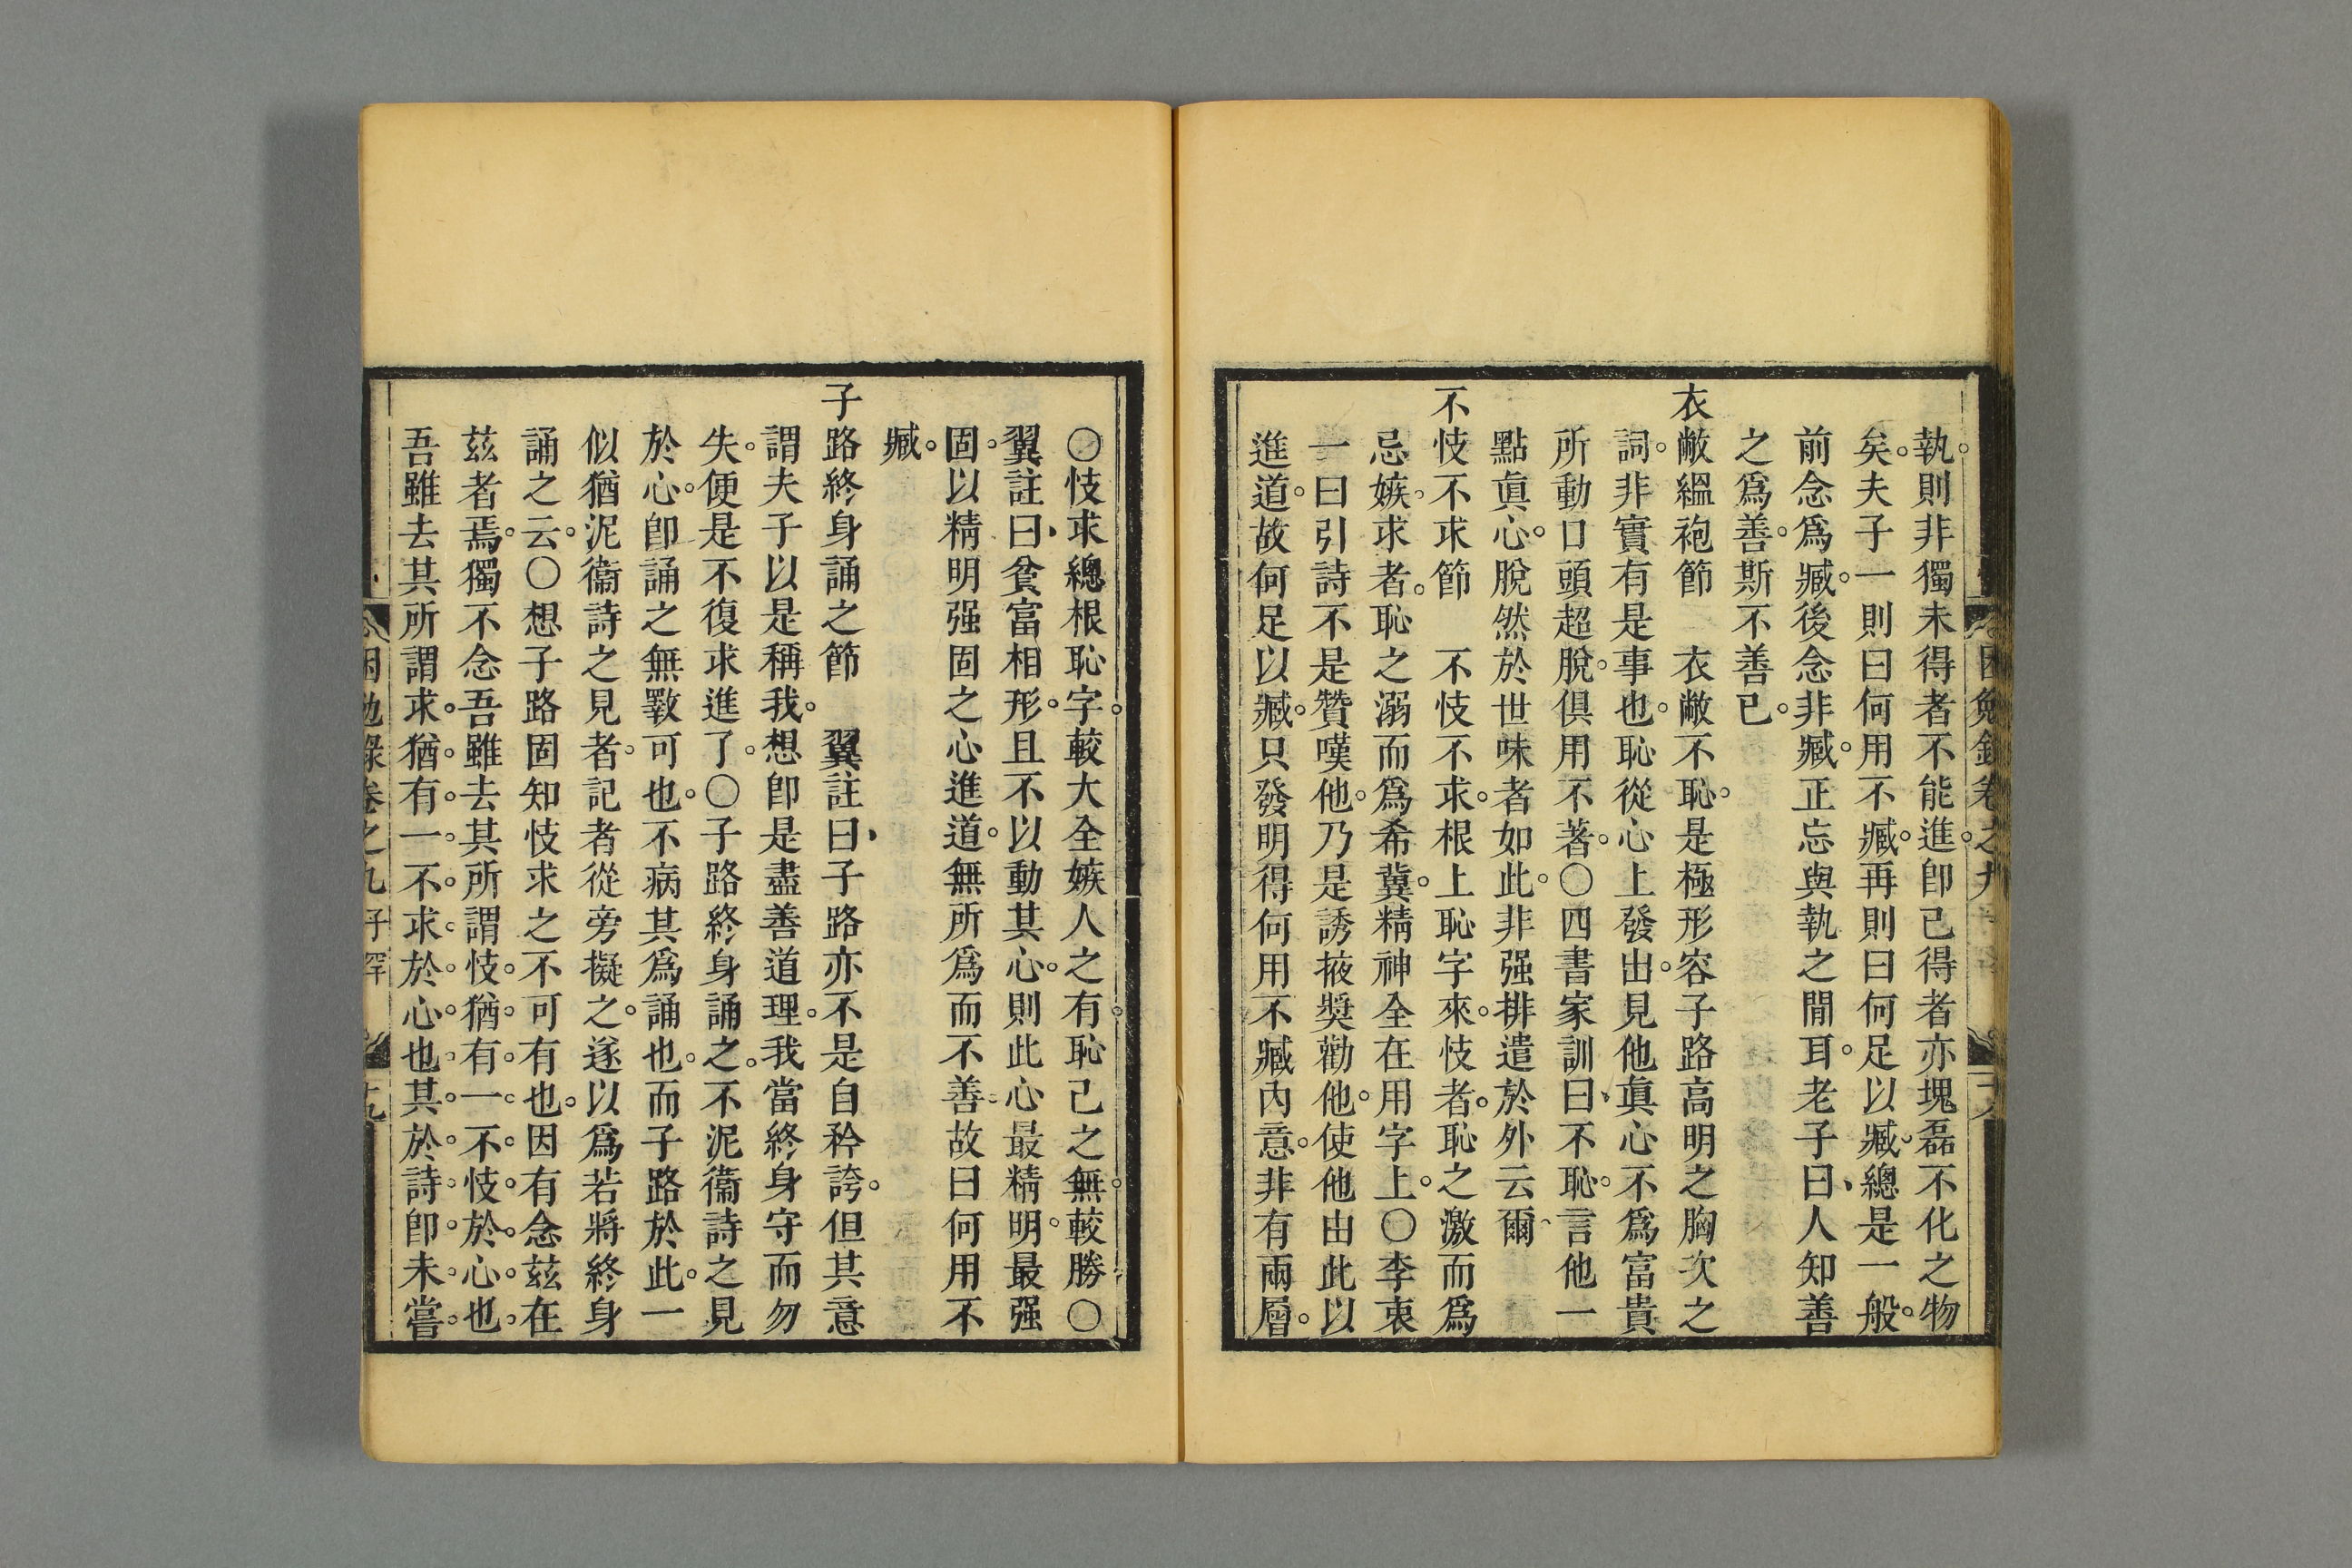 執。則非獨未得者不能進。卽已得者亦塊磊不化之物
矣。夫子一則曰何用不臧。再則曰何足以臧。總是一般。
前念爲臧。後念非臧。正忘與執之間耳。老子曰、人知善
之爲善。斯不善已。
衣敝縕袍節　衣敝不恥。是極形容子路高明之胸次之
詞。非實有是事也。恥從心上發出。見他眞心不爲富貴
所動。口頭超脫。俱用不著。○四書家訓曰、不恥。言他一
點眞心。脫然於世味者如此。非强排遣於外云爾。
不忮不求節　不忮不求。根上恥字來。忮者。恥之激而爲
忌嫉。求者。恥之溺而爲希冀。精神全在用字上。○李衷
一曰引詩不是贊嘆他。乃是誘掖奬勸他。使他由此以
進道。故何足以臧。只發明得何用不臧內意。非有兩層。
困勉錄卷之九
○忮求總根恥字。較大全嫉人之有。恥己之無。較勝○
翼註曰、貧富相形。且不以動其心。則此心最精明。最强
固。以精明强固之心進道。無所爲而不善。故曰何用不
臧。
子路終身誦之節　翼註曰、子路亦不是自矜誇。但其意
謂夫子以是稱我。想卽是盡善道理。我當終身守而勿
失。便是不復求進了。○子路終身誦之。不泥衞詩之見
於心。卽誦之無斁可也。不病其爲誦也。而子路於此。一
似猶泥衞詩之見者。記者從旁擬之。遂以爲若將終身
誦之云。○想子路固知忮求之不可有也。因有念茲在
茲者焉。獨不念吾雖去其所謂忮。猶有一不忮於心也。
吾雖去其所謂求。猶有一不求於心也。其於詩卽未嘗
困勉錄卷之九
十九